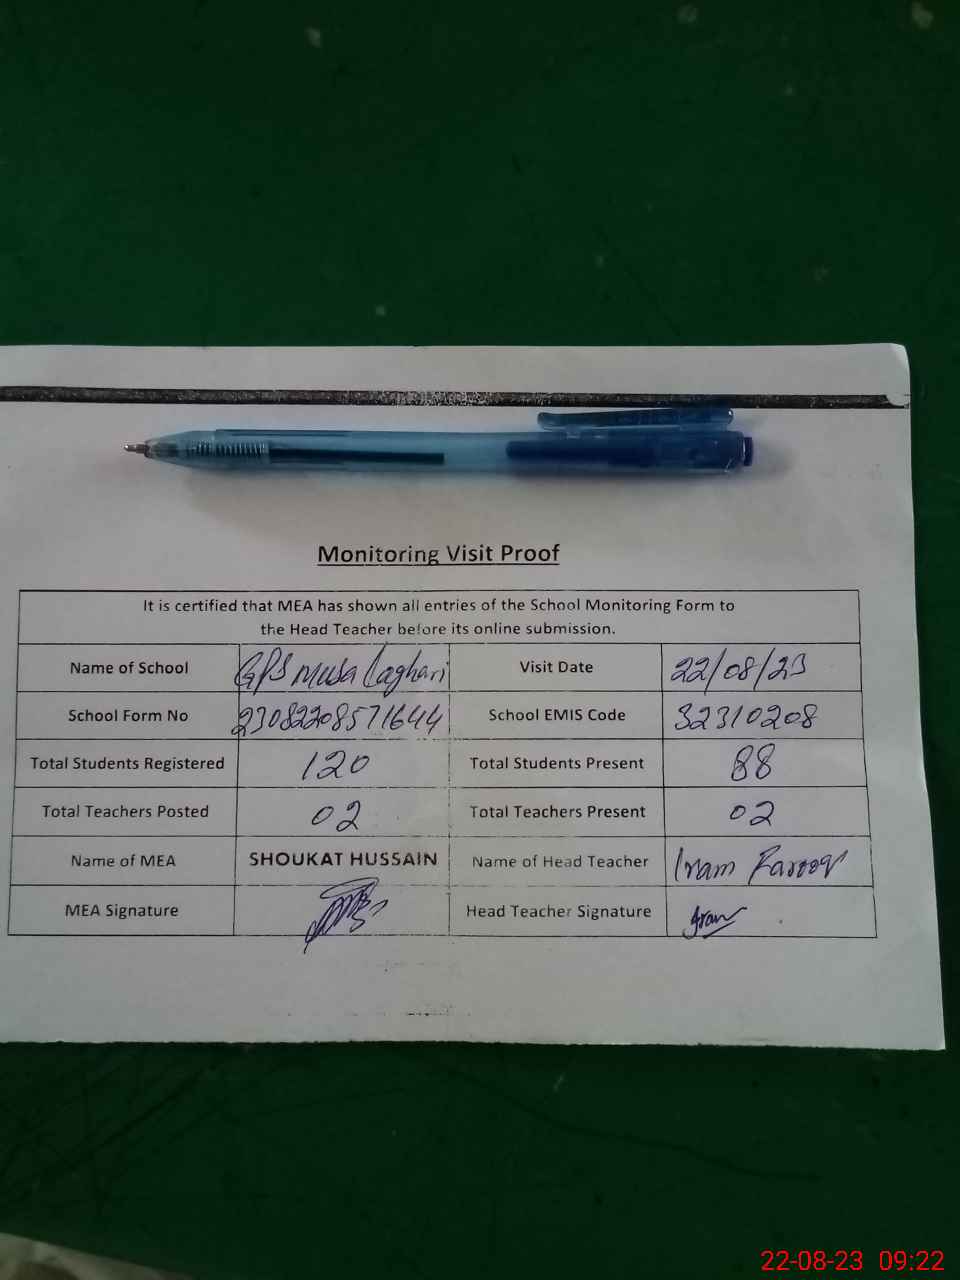 Monitoring Visit Proof
It is certified that MEA has shown all entries of the School Monitoring Form to
the Head Teacher before its online submission.
Name of School GPS Musa Laghari Visit Date 22/08/23
School Form No 23082208571644 School EMIS Code 32310208
Total Students Registered 120 Total Students Present 88
Total Teachers Posted 02 Total Teachers Present 02
Name of MEA SHOUKAT HUSSAIN Name of Head Teacher Iram Farooq
MEA Signature Head Teacher Signature Iram
22-08-23 09:22